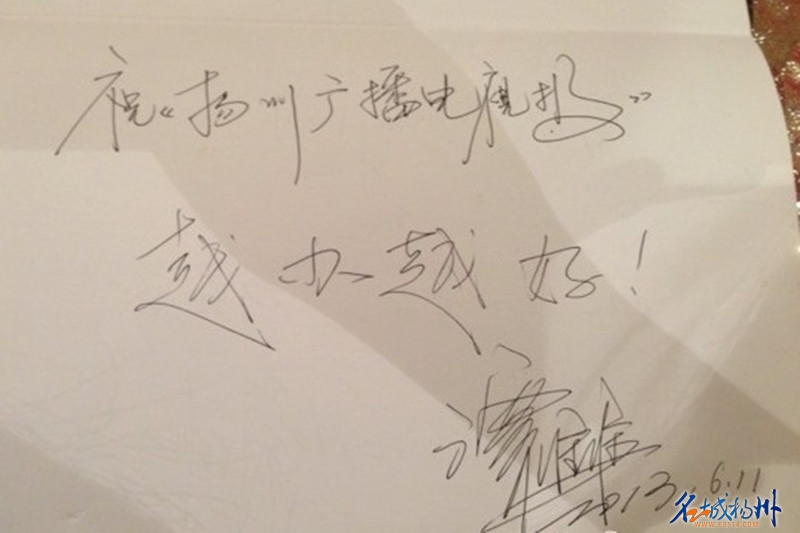 祝《扬州广播电视报》
越办越好!
2013.6.11
名城扬州